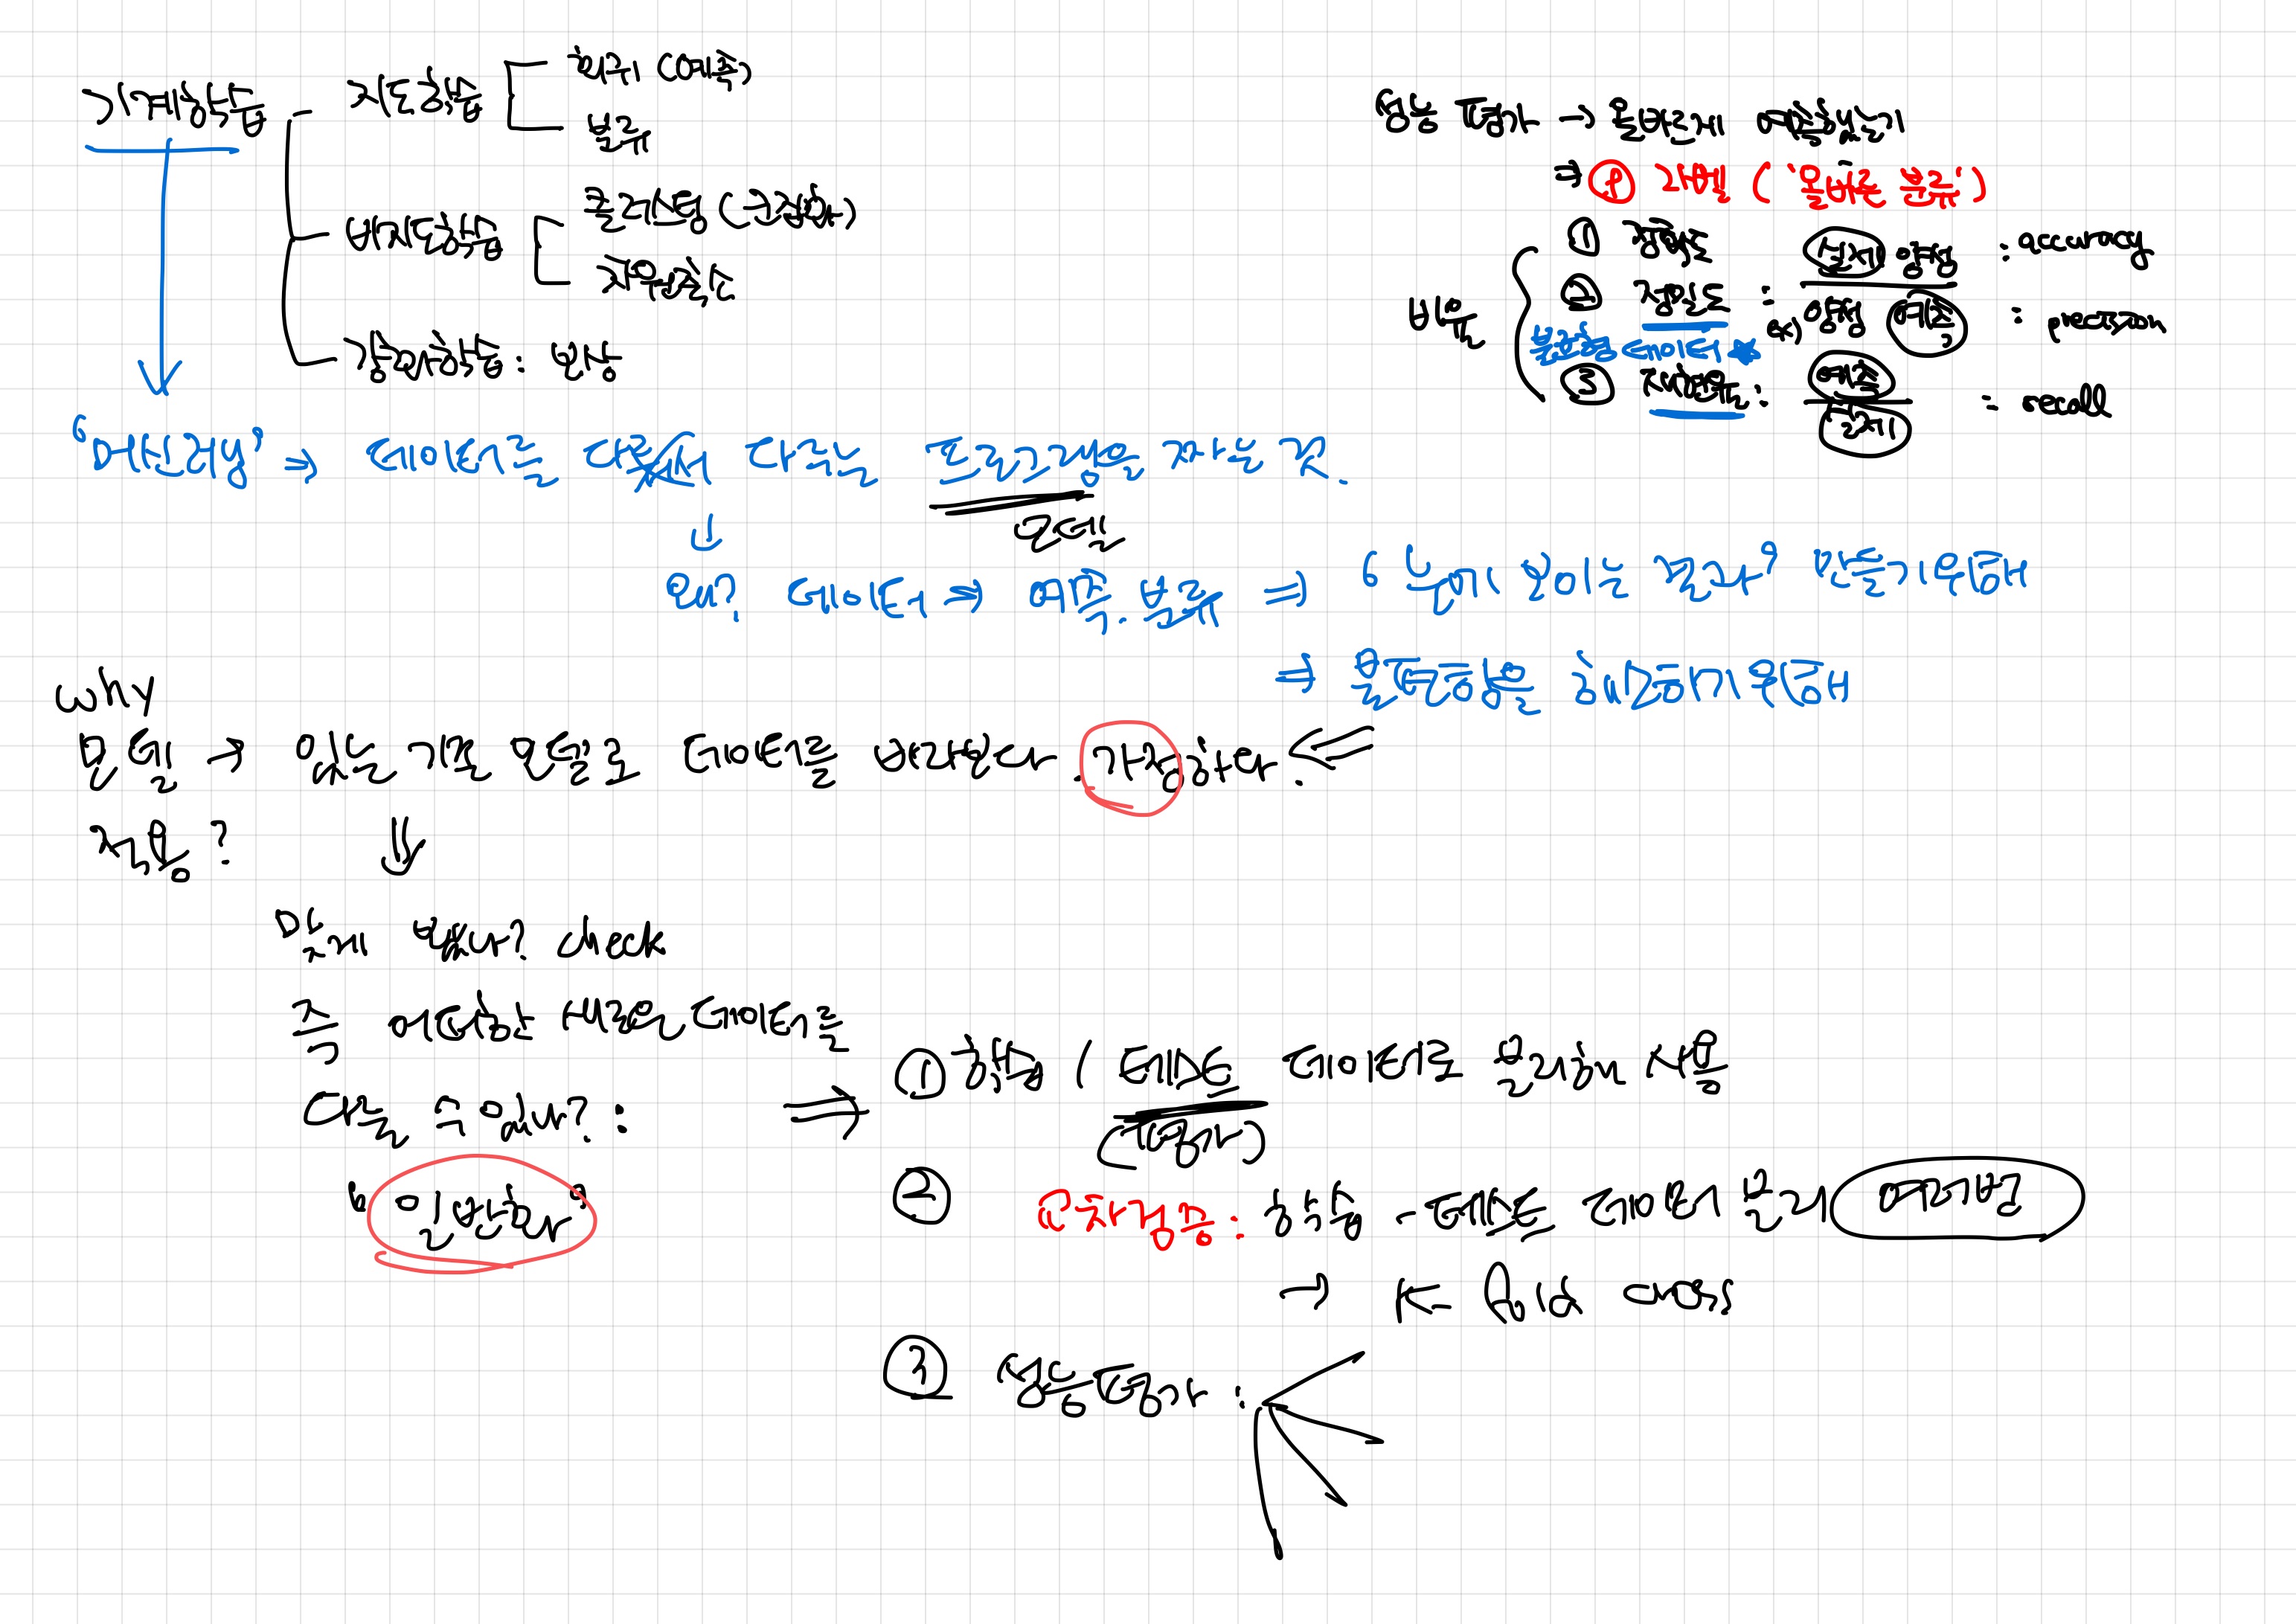 기계학습
지도학습
회귀 (예측)
분류
비지도학습
클러스터링 (군집화)
차원축소
강화학습 : 보상
성능 평가 → 올바르게 예측했는가
⇒ ① 라벨 ('올바른 분류')
비율
① 정확도 실제 양성 : accuracy
② 정밀도 : ex) 양성 예측 : precision
불균형 데이터 ★
③ 재현율 : 예측 실제 : recall
'머신러닝' ⇒ 데이터를 다루는 프로그램을 짜는 것.
모델
↓
왜? 데이터 ⇒ 예측. 분류 ⇒ '눈에 보이는 결과' 만들기 위해
⇒ 불편함을 해소하기 위해
why
모델 → 있는 기존 모델로 데이터를 배웠다 가정하다. ⇐
적용?
⇓
맞게 배웠나? check
즉 어떠한 새로운 데이터를
다룰 수 있나? :
"일반화"
⇒ ① 학습 / 테스트 데이터로 분리해 사용
(평가)
② 교차검증 : 학습 - 테스트 데이터 분리 여러번
→ K fold cross
③ 성능평가 :